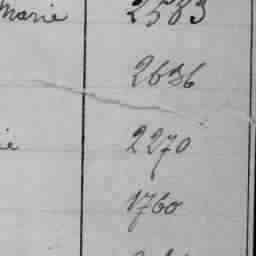 Marie 2583
2636
ie 2270
1760